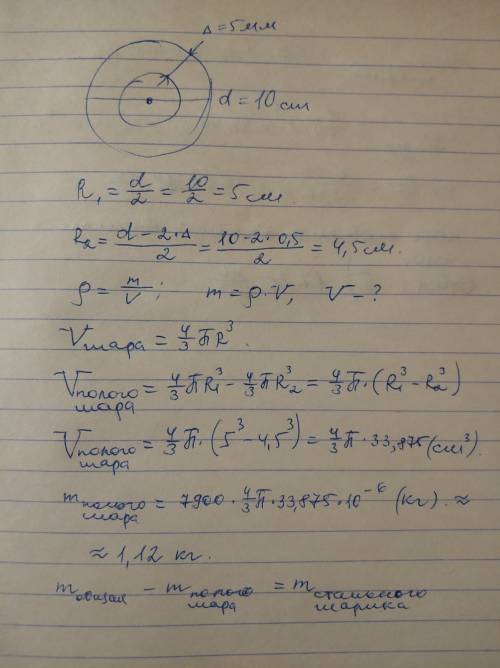 Δ = 5 мм
d = 10 см
R₁ = d/2 = 10/2 = 5 см.
R₂ = (d − 2·Δ)/2 = (10 − 2·0,5)/2 = 4,5 см.
ρ = m/V; m = ρ·V, V − ?
Vшара = 4/3 πR³.
Vполого шара = 4/3 πR₁³ − 4/3 πR₂³ = 4/3 π·(R₁³ − R₂³)
Vполого шара = 4/3 π·(5³ − 4,5³) = 4/3 π·33,875 (см³).
mполого шара = 7900·4/3 π·33,875·10⁻⁶ (кг). ≈
≈ 1,12 кг.
mобщая − mполого шара = mстального шарика